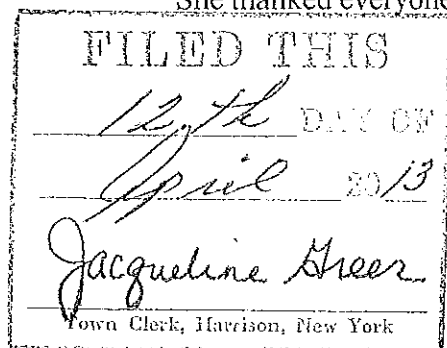 She thanked everyone
FILED THIS
12th DAY OF
April 2013
Jacqueline Greer
Town Clerk, Harrison, New York